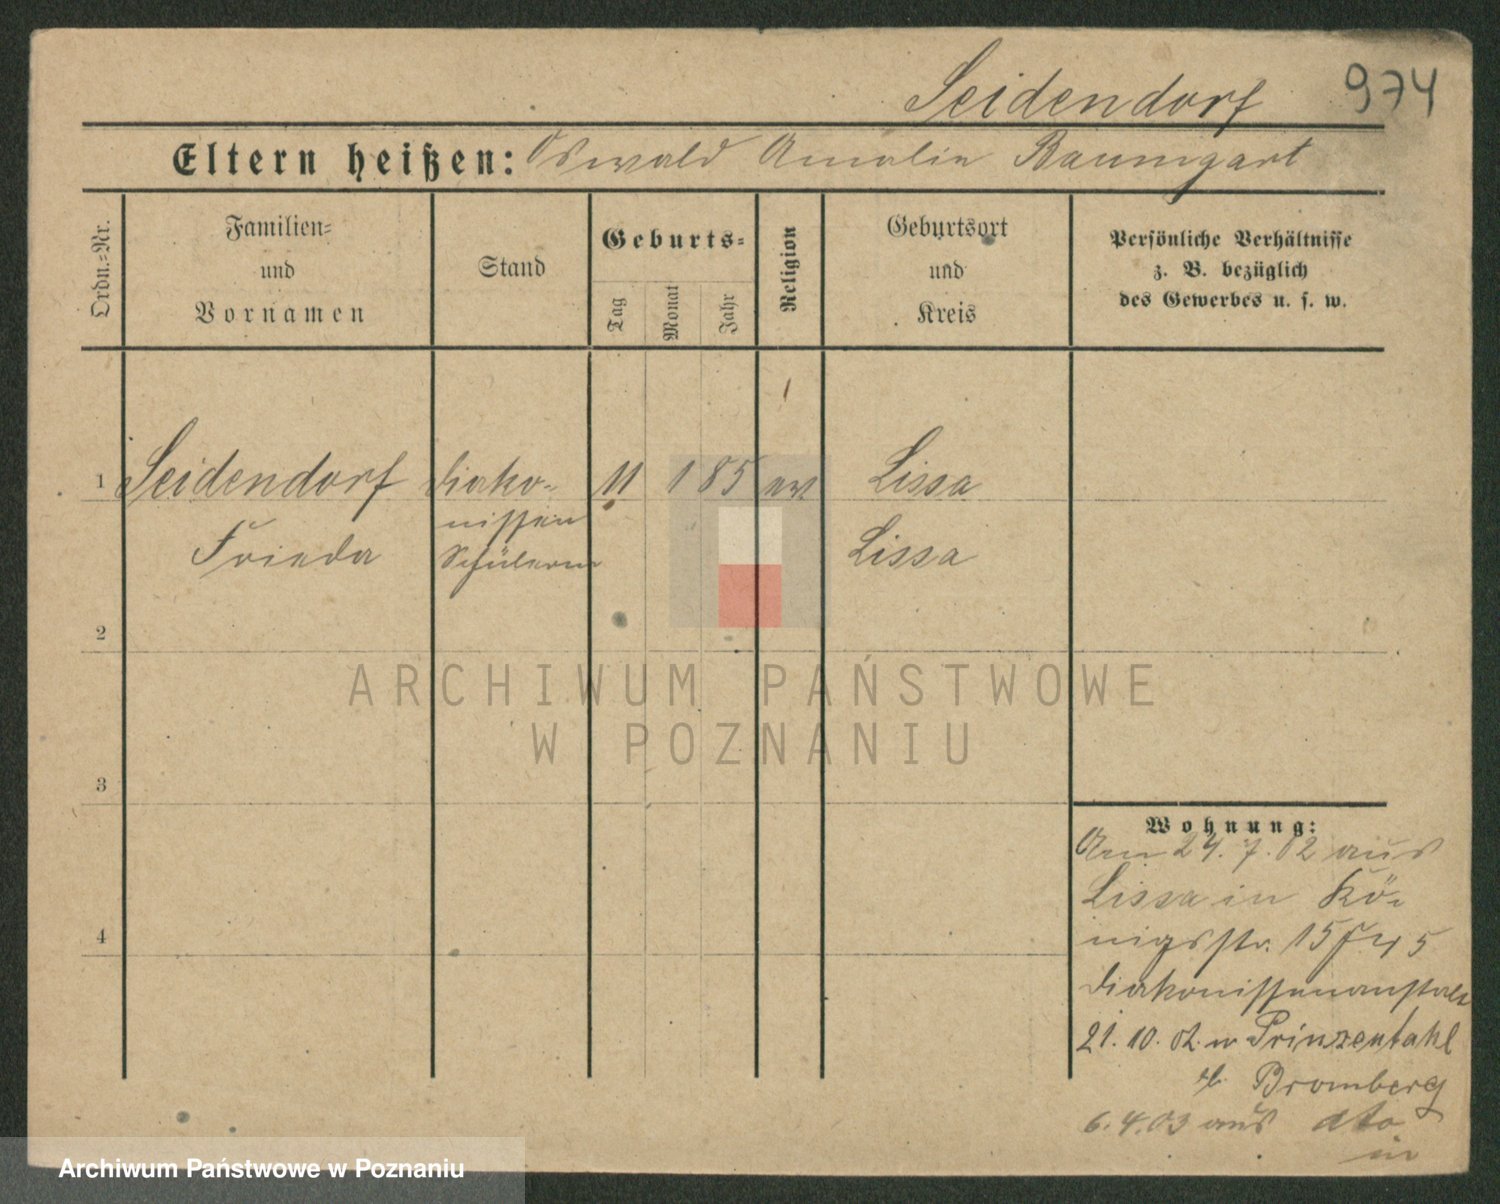 974
Seidendorf
Eltern heißen: Oswald Amalie Baumgart
Ordn.-Nr.
Familien- und Vornamen
Stand
Geburts-
Tag
Monat
Jahr
Religion
Geburtsort und Kreis
Persönliche Verhältnisse
z. B. bezüglich
des Gewerbes u. s. w.
1 Seidendorf Diako- 11 1 85 ev Lissa
nissen
Frieda Schülerin Lissa
2
3
4
ARCHIWUM PAŃSTWOWE
W POZNANIU
Wohnung:
Am 24. 7. 02 aus
Lissa in Kö-
nigsstr. 15
Diakonissenanstalt
21. 10. 02 n Prinzentahl
b. Bromberg
6. 4. 03 aus dto
in
Archiwum Państwowe w Poznaniu